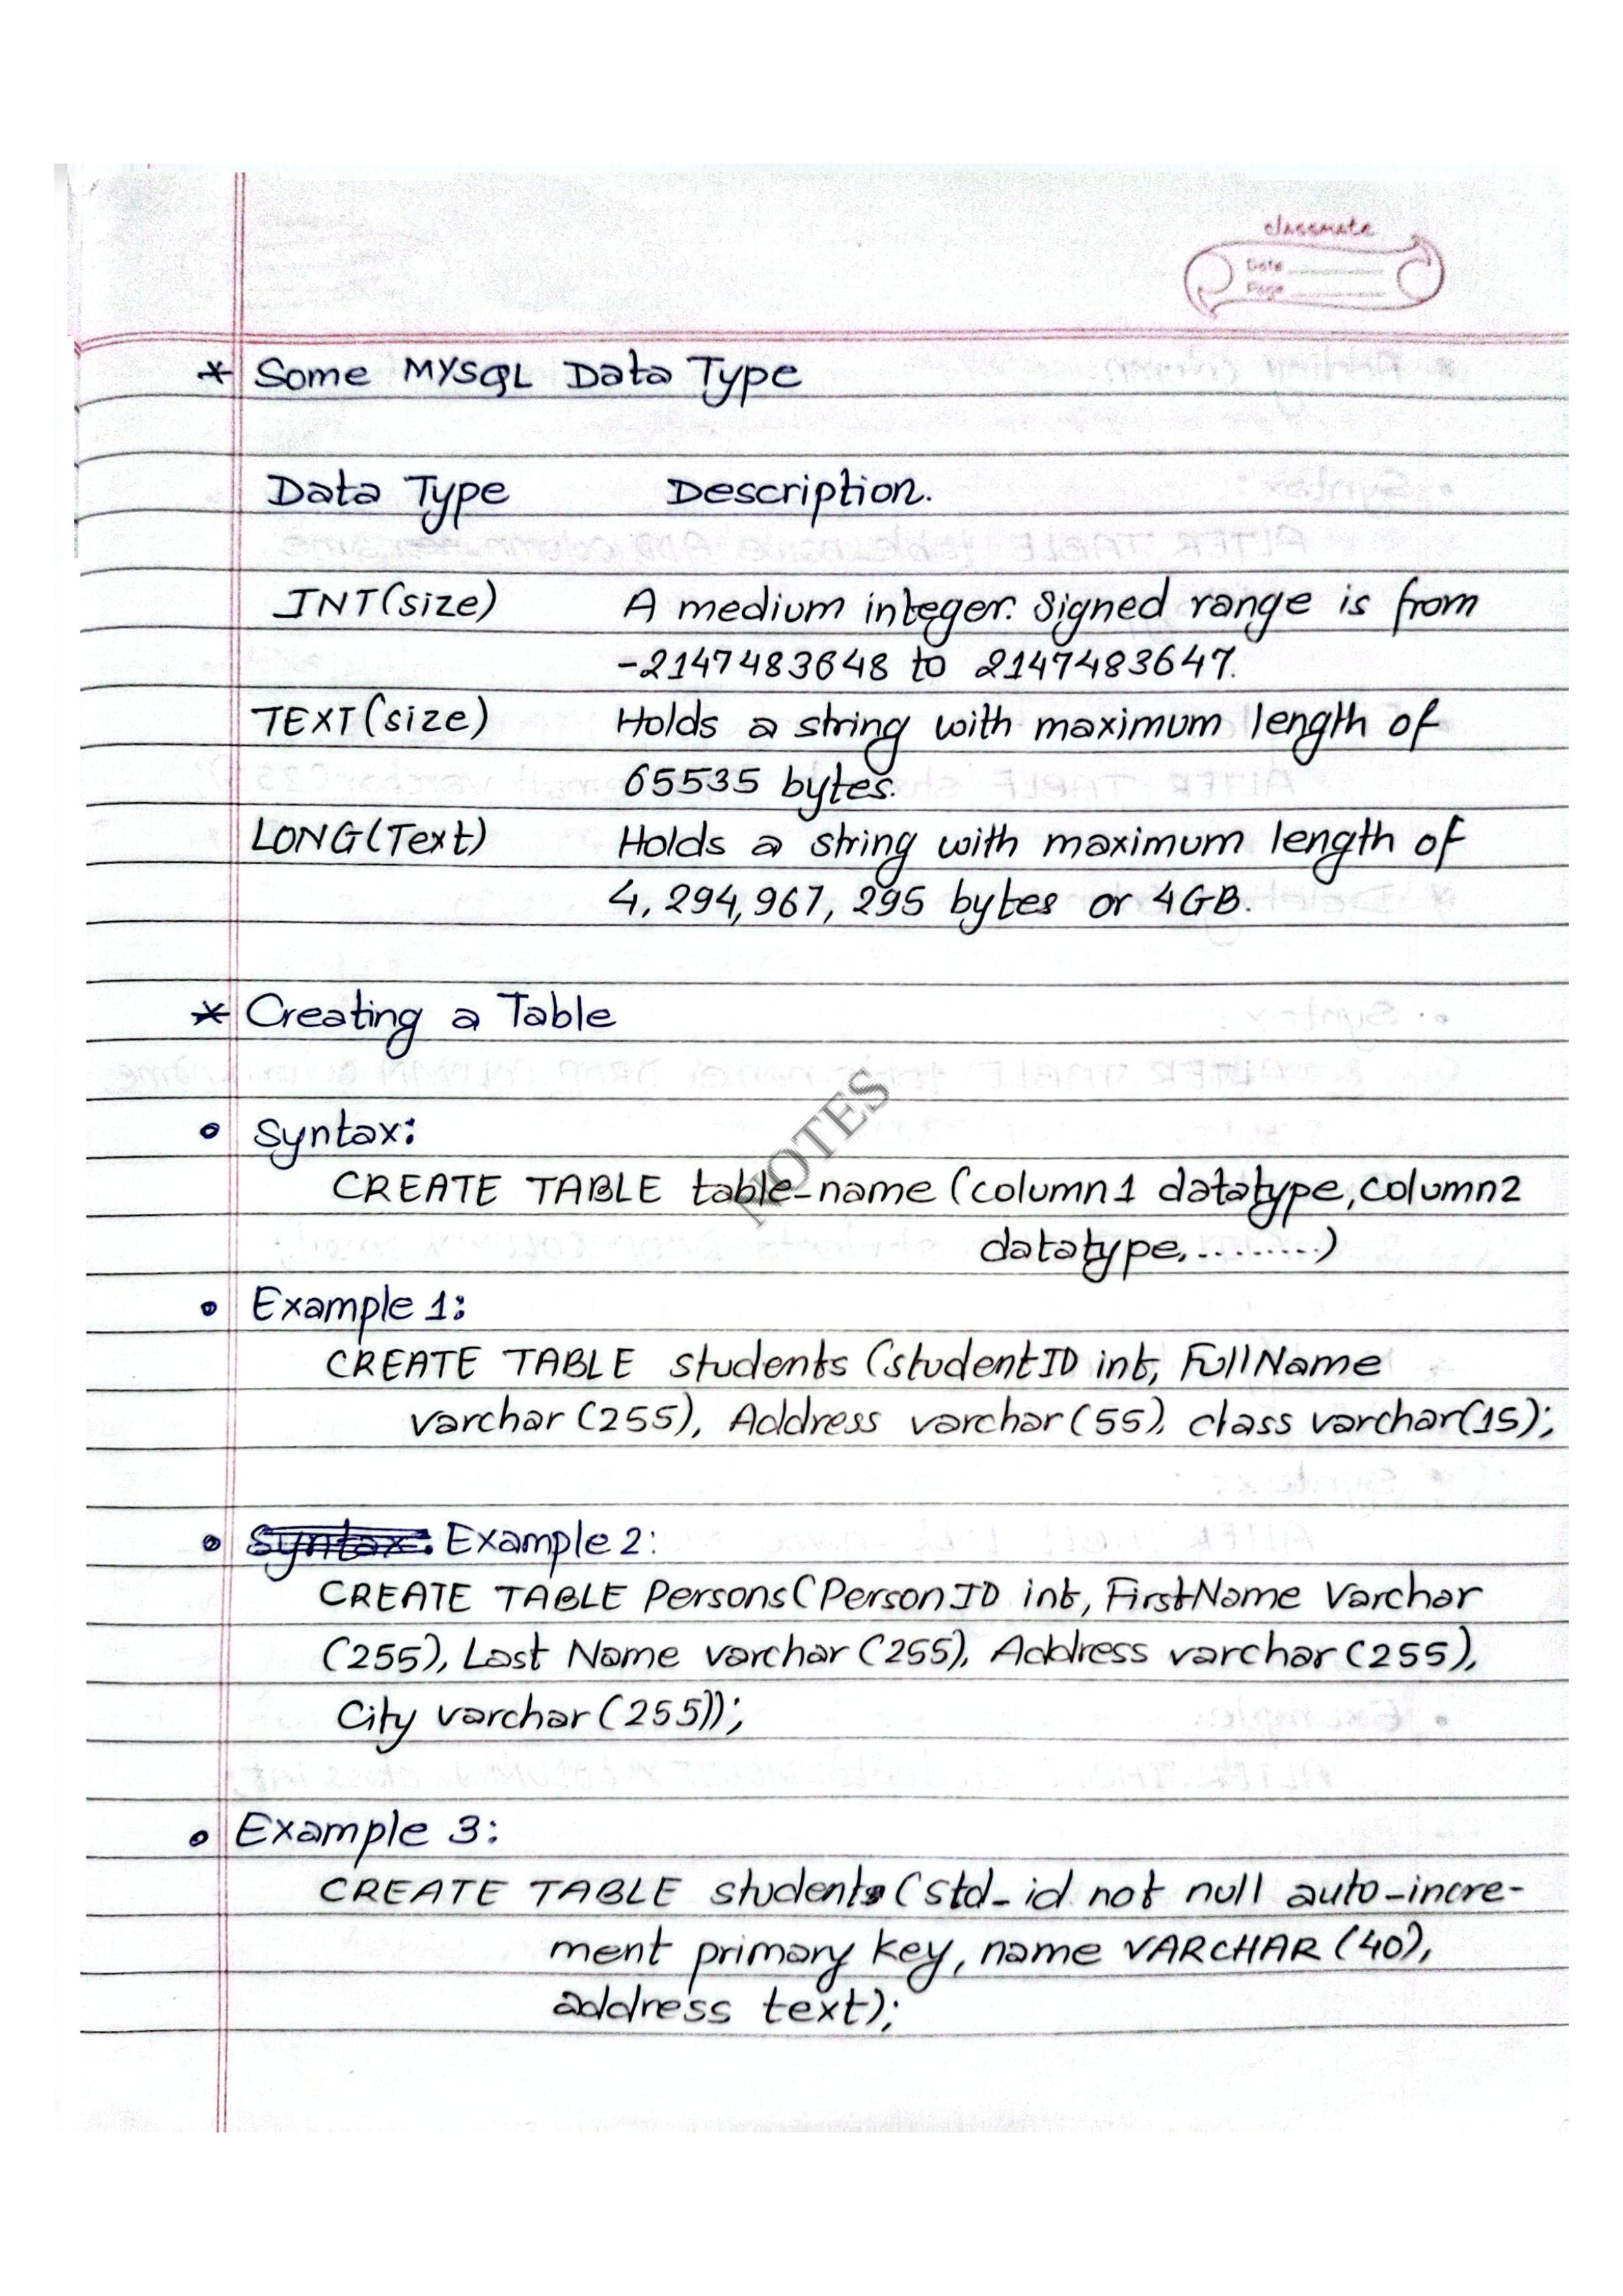 classmate
Date
Page
* Some MYSQL Data Type
Data Type Description.
INT(size) A medium integer. Signed range is from
-2147483648 to 2147483647.
TEXT(size) Holds a string with maximum length of
65535 bytes.
LONG(Text) Holds a string with maximum length of
4,294,967,295 bytes or 4GB.
* Creating a Table
• Syntax:
CREATE TABLE table-name (column1 datatype, column2
datatype, .........)
NOTES
• Example 1:
CREATE TABLE students (studentID int, FullName
varchar (255), Address varchar (55), class varchar(15);
• Syntax: Example 2:
CREATE TABLE Persons(PersonID int, FirstName Varchar
(255), Last Name varchar (255), Address varchar (255),
City varchar (255));
• Example 3:
CREATE TABLE students (std-id not null auto-incre-
ment primary key, name VARCHAR (40),
address text);